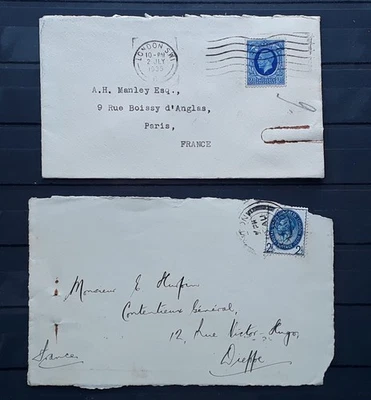 LONDON. SW1
10 - PM
2 JLY
1935
A.H. Manley Esq.,
9 Rue Boissy d'Anglas,
Paris,
FRANCE
Monsieur E
Contentieux Général,
12, Rue Victor-Hugo,
Dieppe
France